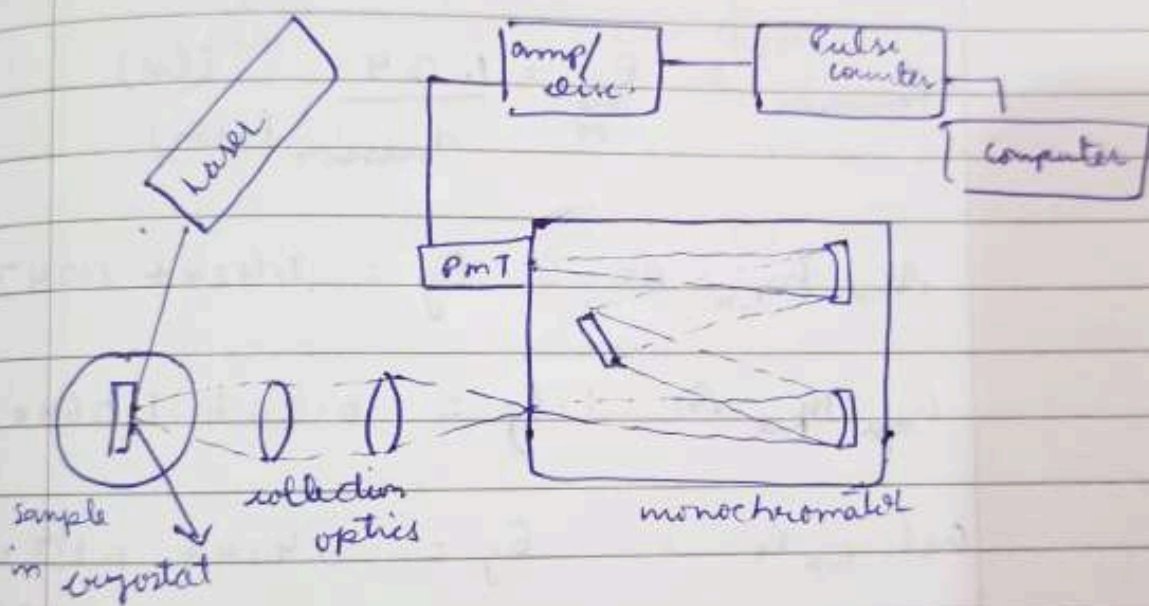 Laser
amp/
disc.
Pulse
counter
computer
PMT
sample
in cryostat
collection
optics
monochromator